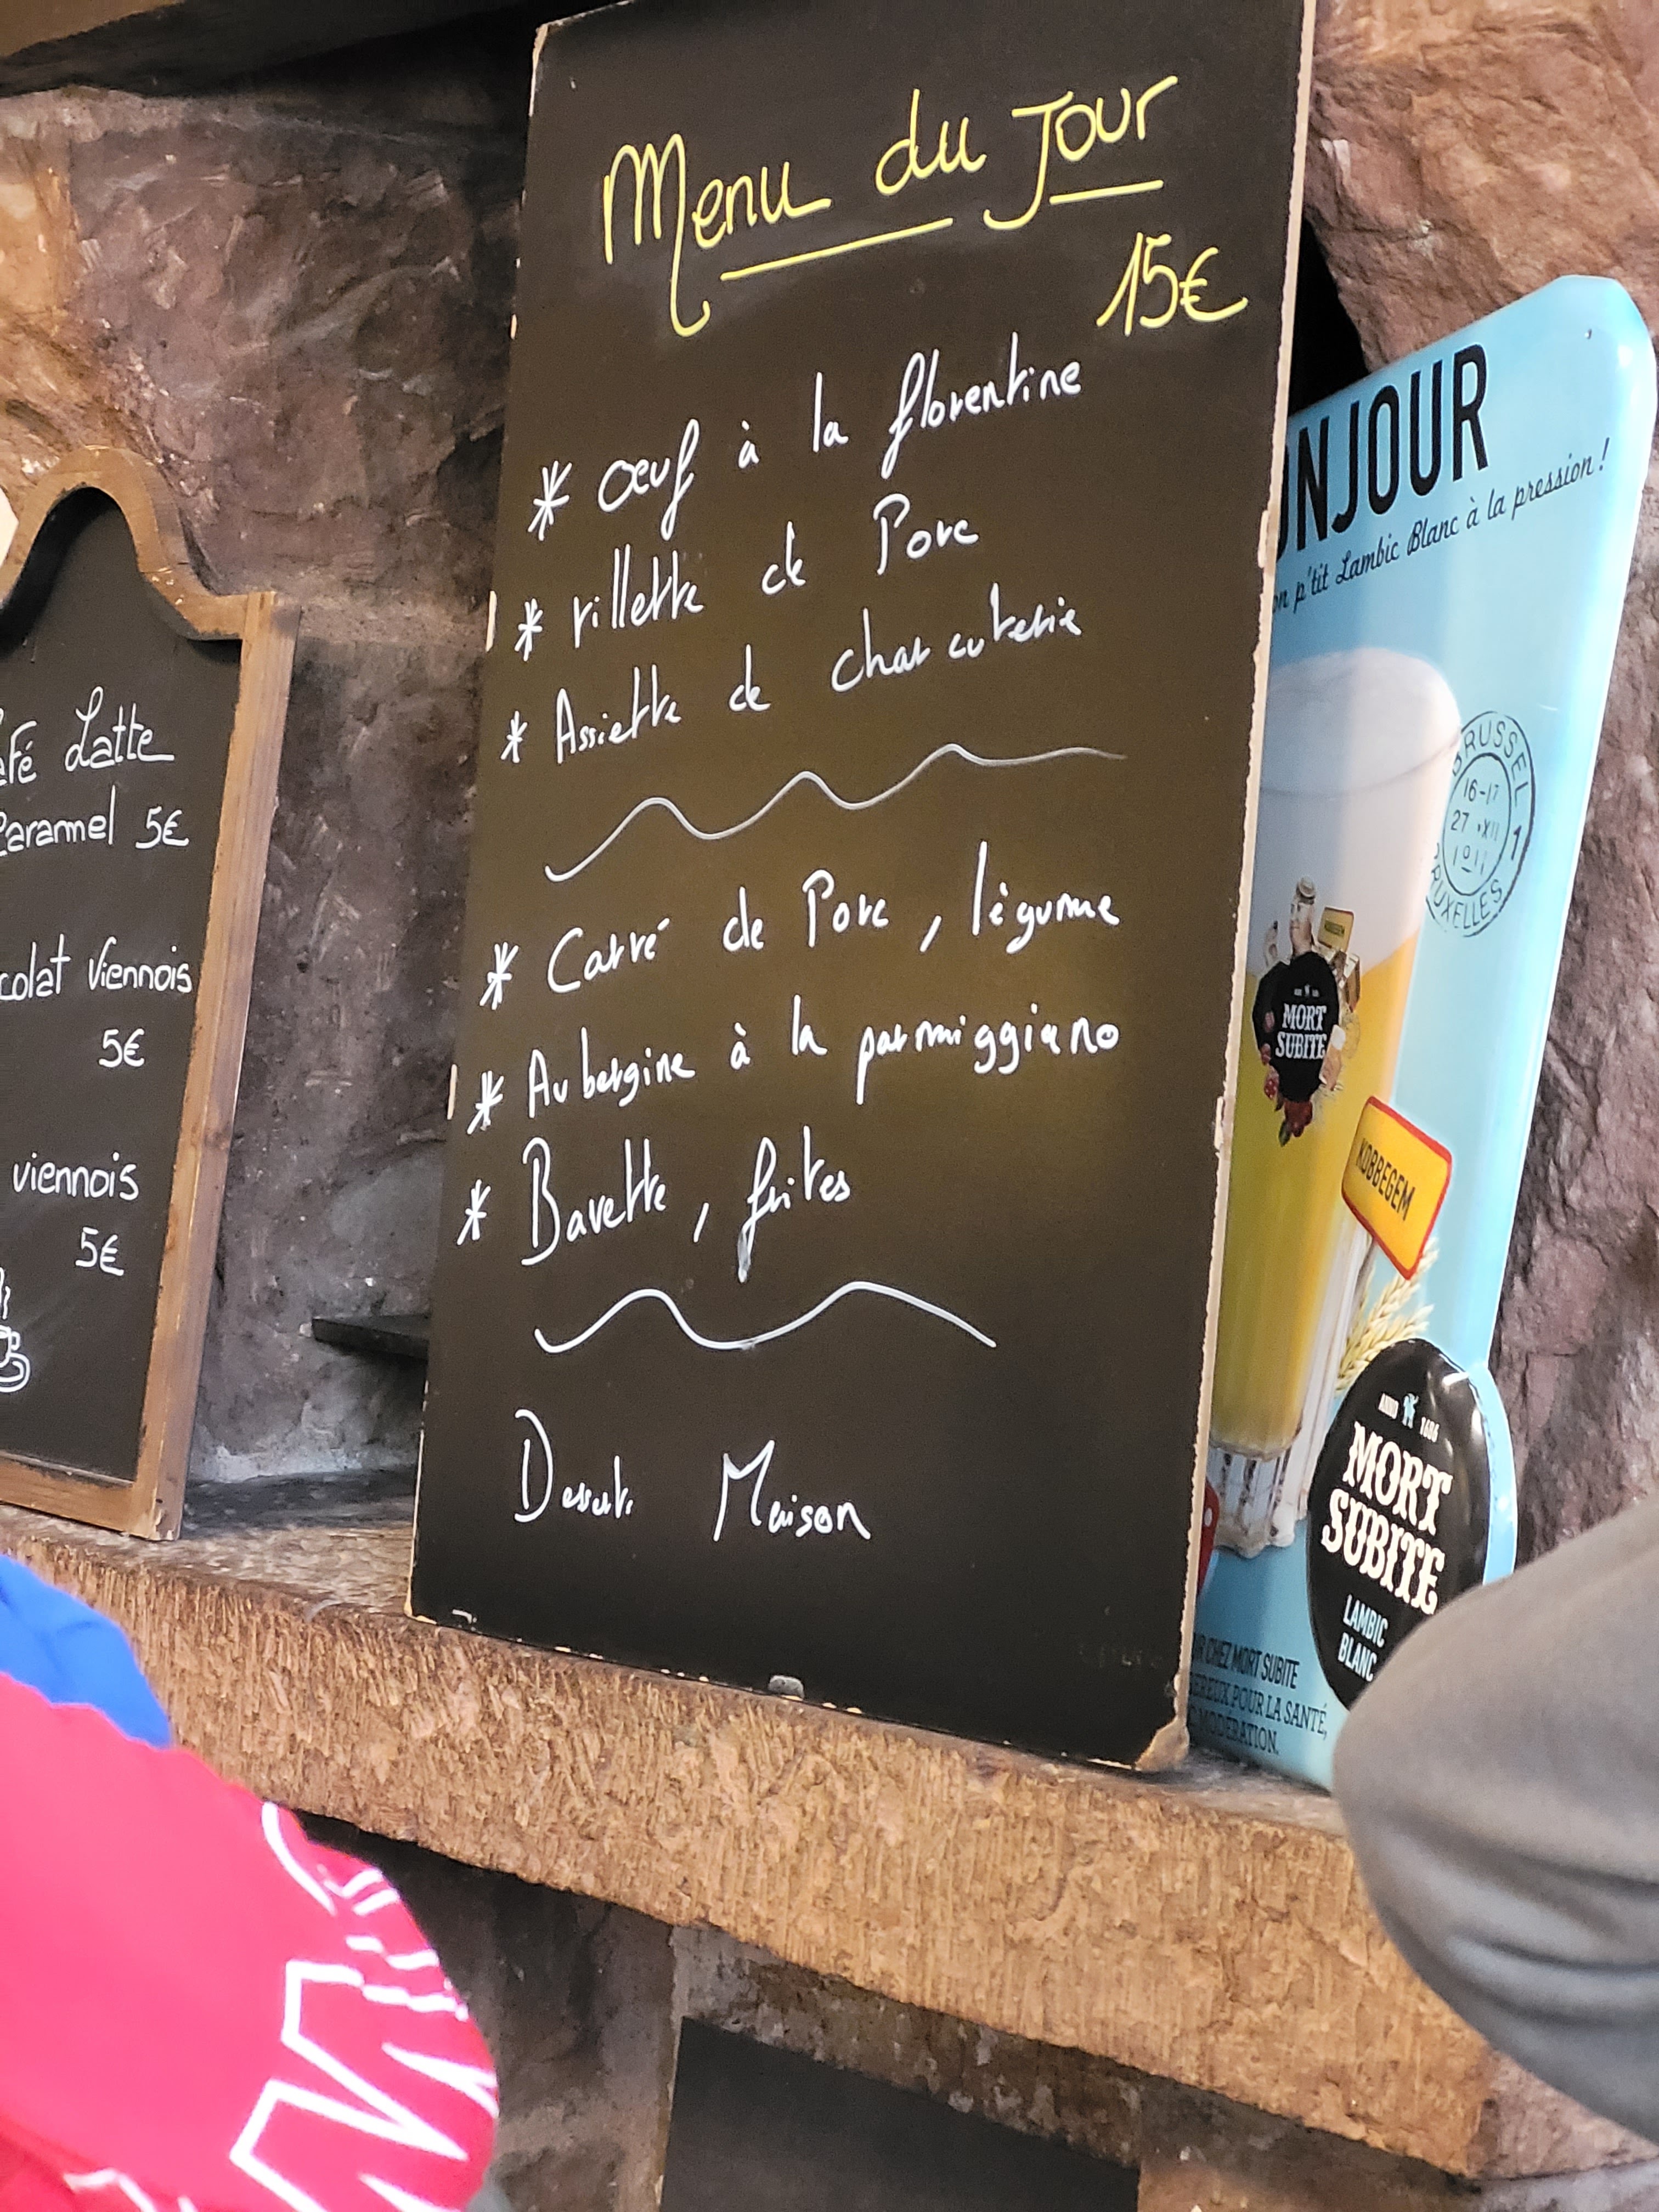 Menu du Jour
15€
* œuf à la florentine
* rillette de Porc
* Assiette de charcuterie
* Carré de Porc, légume
* Aubergine à la parmiggiano
* Bavette, frites
Desserts Maison
afé Latte
Caramel 5€
colat Viennois
5€
viennois
5€
ONJOUR
on p'tit Lambic Blanc à la pression !
BRUSSEL 1
16-17
27 XII
BRUXELLES
MORT
SUBITE
KOBBEGEM
ANNO 1686
MORT
SUBITE
LAMBIC
BLANC
R CHEZ MORT SUBITE
GEREUX POUR LA SANTÉ,
MODÉRATION.